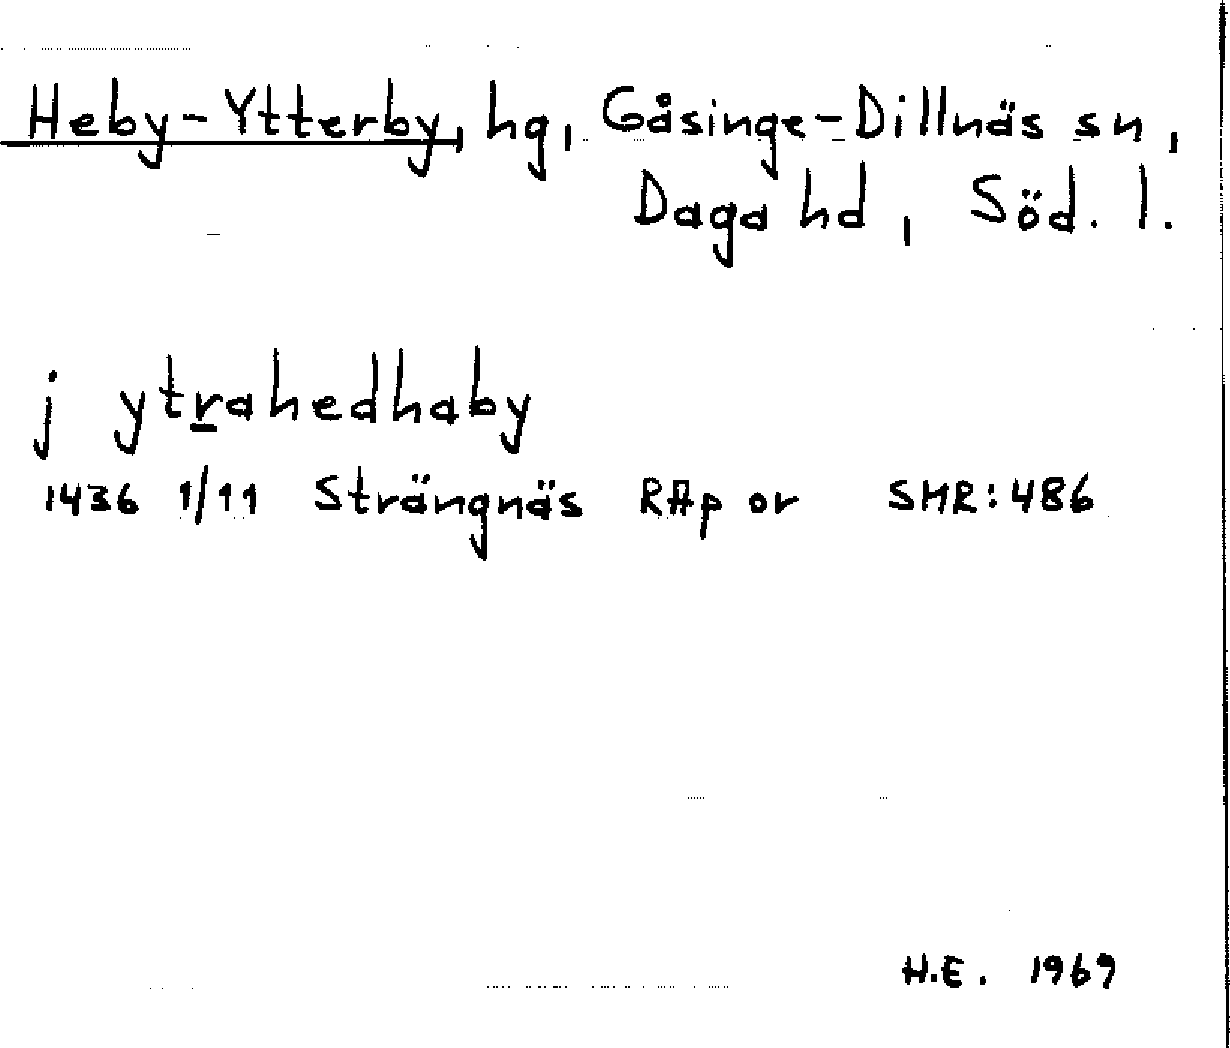 Heby-Ytterby, hg, Gåsinge-Dillnäs sn,
Daga hd, Söd. l.
j ytrahedhaby
1436 1/11 Strängnäs RAp or SMR:486
H.E. 1969